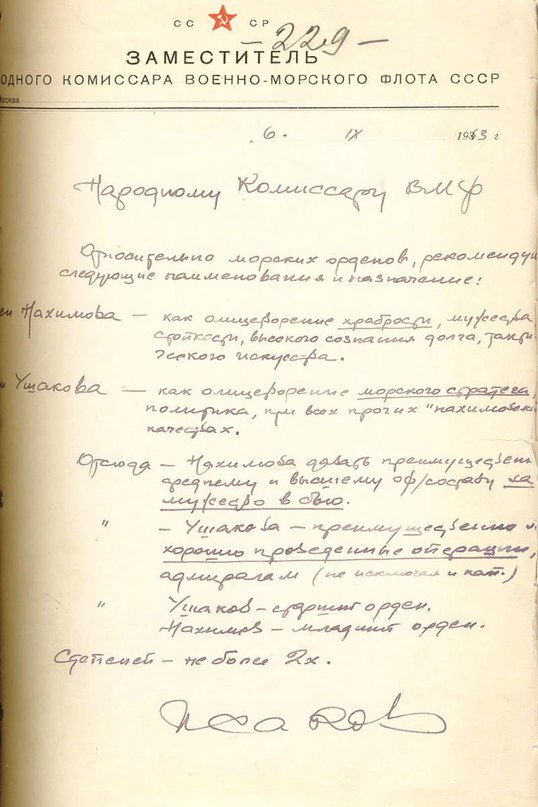 СС СР
— 229 —
ЗАМЕСТИТЕЛЬ
ОДНОГО КОМИССАРА ВОЕННО-МОРСКОГО ФЛОТА СССР
Москва
6. IX 1943 г
Народному Комиссару ВМФ
Относительно морских орденов, рекомендую
следующие наименования и назначение:
ен Нахимова — как олицетворение храбрости, мужества,
стойкости, высокого сознания долга, такти-
ческого искусства.
н Ушакова — как олицетворение морского стратега,
политика, при всех прочих "нахимовских
качествах.
Отсюда — Нахимова давать преимуществен
среднему и высшему оф/составу за
мужество в бою.
" — Ушакова — преимущественно
хорошо проведенные операции,
адмиралам (не исключая и кап.)
" Ушаков — старший орден.
Нахимов — младший орден.
Степеней — не более 2х.
Исаков